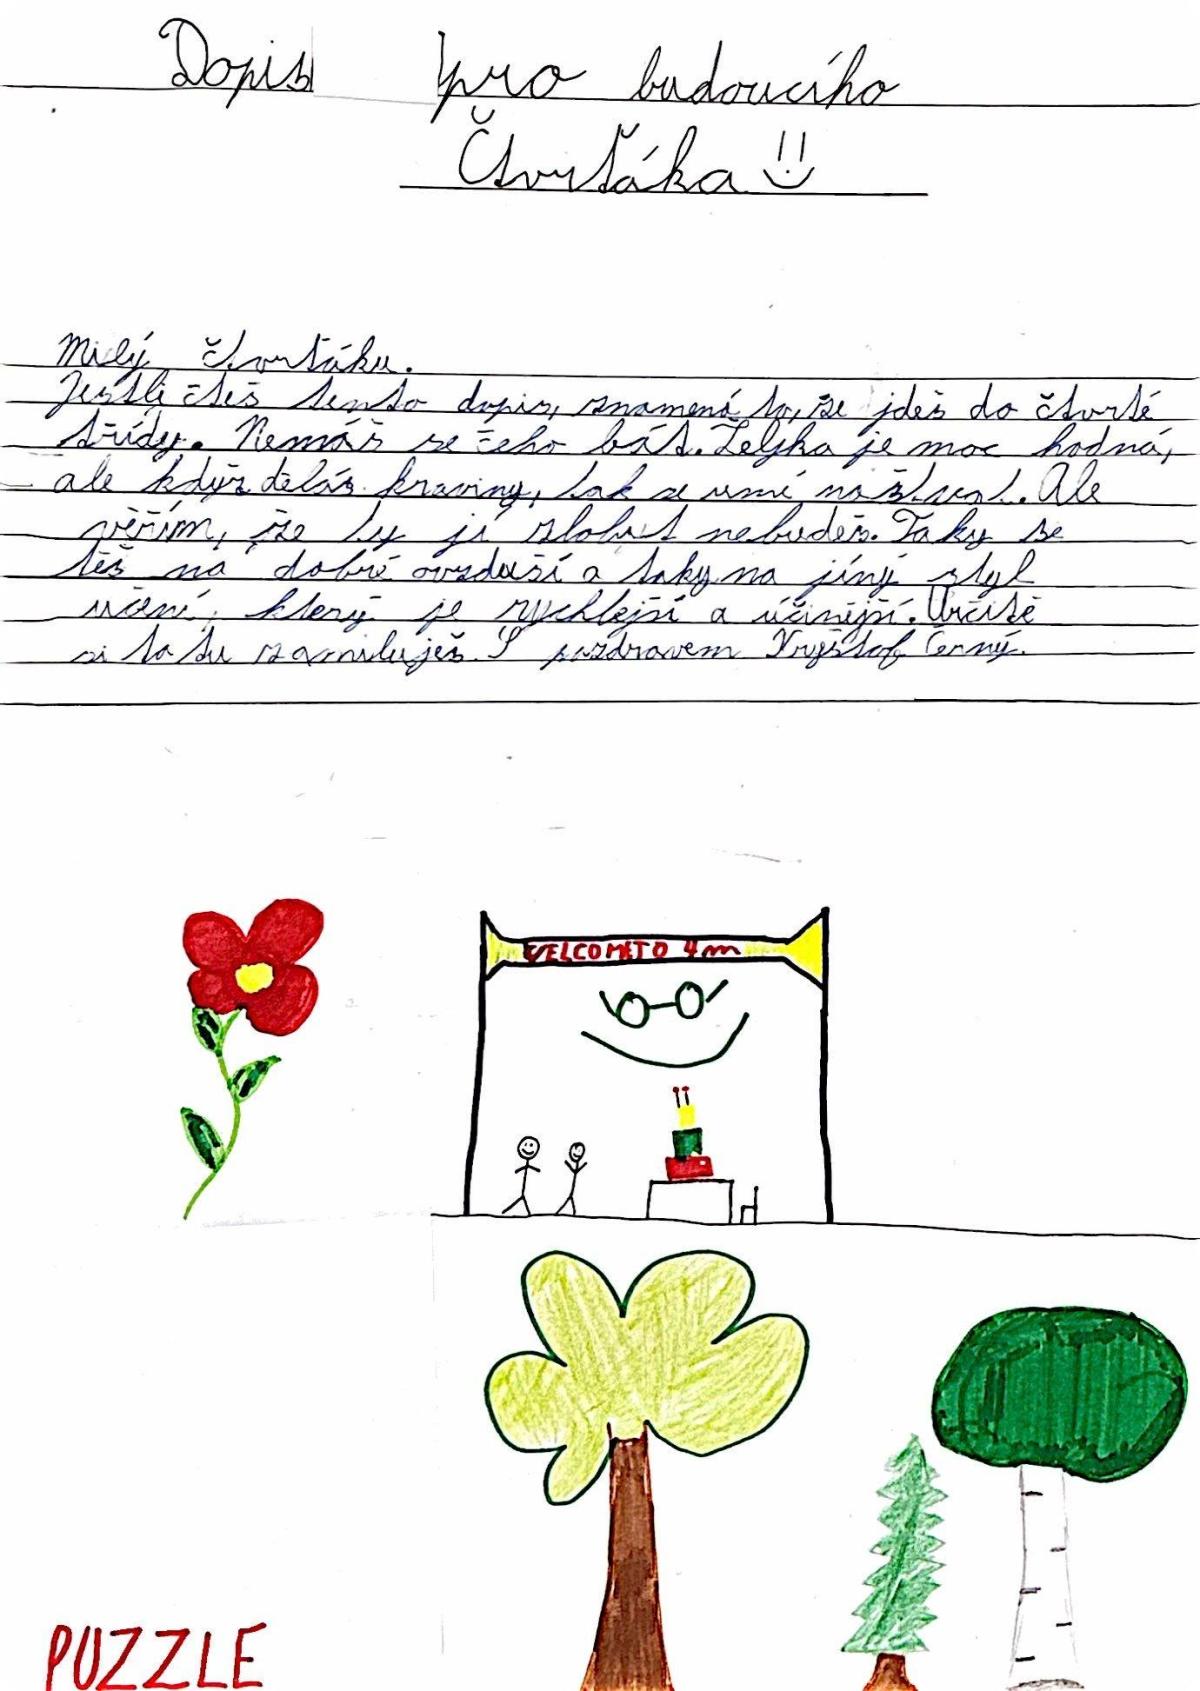 Dopis pro budoucího
Čtvrťáka
Milý čtvrťáku.
Jestli čteš tento dopis, znamená to, že jdeš do čtvrté
třídy. Nemáš se čeho bát. Željka je moc hodná,
ale když děláš kraviny, tak se umí naštvat. Ale
věřím, že ty jí zlobit nebudeš. Taky se
těš na dobré ovzduší a taky na jiný styl
učení, který je rychlejší a účinější. Určitě
si to tu zamiluješ. S pozdravem Kryštof Černý.
WELCOME TO 4m
PUZZLE